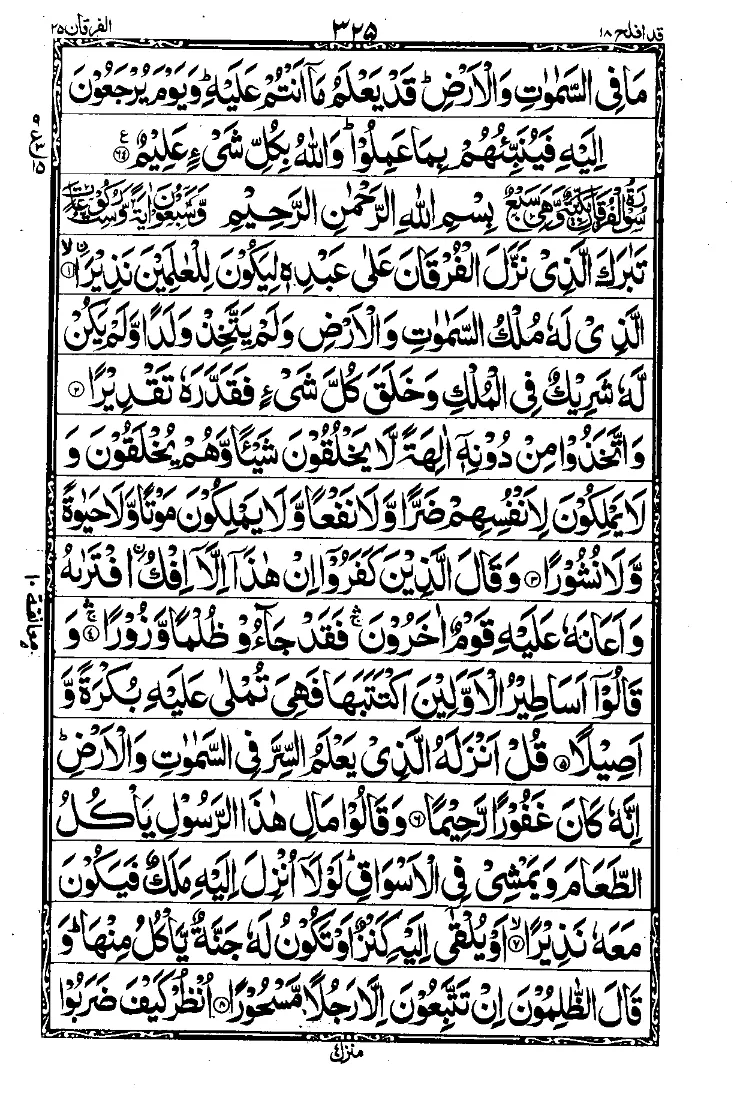 قد افلح ١٨
٣٢٥
الفرقان ٢٥
مَا فِي السَّمٰوٰتِ وَالْاَرْضِ ؕ قَدْ يَعْلَمُ مَاۤ اَنْتُمْ عَلَيْهِ ؕ وَيَوْمَ يُرْجَعُوْنَ
اِلَيْهِ فَيُنَبِّئُهُمْ بِمَا عَمِلُوْا ؕ وَاللّٰهُ بِكُلِّ شَىْءٍ عَلِيْمٌ ﴿٦٤﴾ ع
سُوْرَةُ الْفُرْقَانِ مَكِّيَّةٌ وَّهِىَ سَبْعٌ بِسْمِ اللّٰهِ الرَّحْمٰنِ الرَّحِيْمِ وَّسَبْعُوْنَ اٰيَةً وَّسِتُّ رُكُوْعَاتٍ
تَبٰرَكَ الَّذِىْ نَزَّلَ الْفُرْقَانَ عَلٰى عَبْدِهٖ لِيَكُوْنَ لِلْعٰلَمِيْنَ نَذِيْرَا ۙ﴿١﴾
اۨلَّذِىْ لَهٗ مُلْكُ السَّمٰوٰتِ وَالْاَرْضِ وَلَمْ يَتَّخِذْ وَلَدًا وَّلَمْ يَكُنْ
لَّهٗ شَرِيْكٌ فِى الْمُلْكِ وَخَلَقَ كُلَّ شَىْءٍ فَقَدَّرَهٗ تَقْدِيْرًا ﴿٢﴾
وَاتَّخَذُوْا مِنْ دُوْنِهٖۤ اٰلِهَةً لَّا يَخْلُقُوْنَ شَيْئًا وَّهُمْ يُخْلَقُوْنَ وَ
لَا يَمْلِكُوْنَ لِاَنْفُسِهِمْ ضَرًّا وَّلَا نَفْعًا وَّلَا يَمْلِكُوْنَ مَوْتًا وَّلَا حَيٰوةً
وَّلَا نُشُوْرًا ﴿٣﴾ وَقَالَ الَّذِيْنَ كَفَرُوْۤا اِنْ هٰذَاۤ اِلَّاۤ اِفْكُ اۨفْتَرٰىهُ
وَاَعَانَهٗ عَلَيْهِ قَوْمٌ اٰخَرُوْنَ ۛۚ فَقَدْ جَآءُوْ ظُلْمًا وَّزُوْرًا ۛۚ﴿٤﴾ وَ
قَالُوْۤا اَسَاطِيْرُ الْاَوَّلِيْنَ اكْتَتَبَهَا فَهِىَ تُمْلٰى عَلَيْهِ بُكْرَةً وَّ
اَصِيْلًا ﴿٥﴾ قُلْ اَنْزَلَهُ الَّذِىْ يَعْلَمُ السِّرَّ فِى السَّمٰوٰتِ وَالْاَرْضِ ؕ
اِنَّهٗ كَانَ غَفُوْرًا رَّحِيْمًا ﴿٦﴾ وَقَالُوْا مَالِ هٰذَا الرَّسُوْلِ يَاْكُلُ
الطَّعَامَ وَيَمْشِىْ فِى الْاَسْوَاقِ ؕ لَوْلَاۤ اُنْزِلَ اِلَيْهِ مَلَكٌ فَيَكُوْنَ
مَعَهٗ نَذِيْرًا ۙ﴿٧﴾ اَوْ يُلْقٰۤى اِلَيْهِ كَنْزٌ اَوْ تَكُوْنُ لَهٗ جَنَّةٌ يَّاْكُلُ مِنْهَا ؕ وَ
قَالَ الظّٰلِمُوْنَ اِنْ تَتَّبِعُوْنَ اِلَّا رَجُلًا مَّسْحُوْرًا ﴿٨﴾ اُنْظُرْ كَيْفَ ضَرَبُوْا
معانقة ١٠
منزل ٤